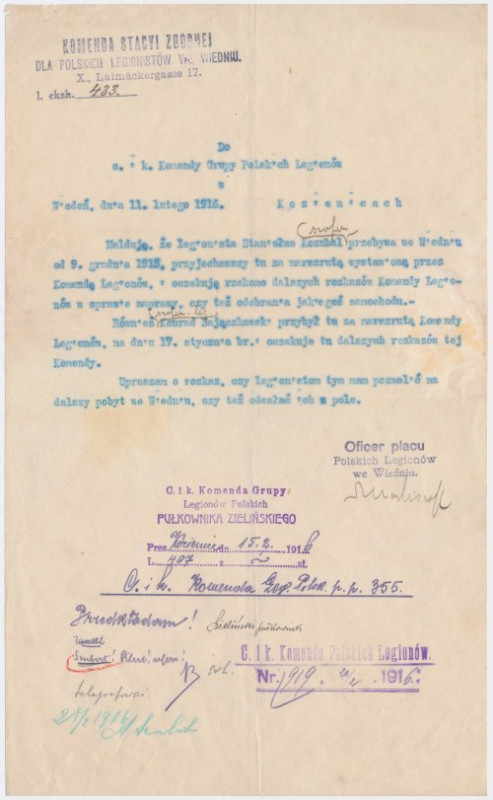 KOMENDA STACYI ZBORNEJ
DLA POLSKICH LEGIONISTÓW WE WIEDNIU.
X., Laimäckergasse 17.
l. eksh. 433.
Do
c. i k. Komendy Grupy Polskich Legionów
w
Wiedeń, dnia 11. lutego 1916. Kozienicach
szofer
Melduję, że legionista Stanisław Kozubal przebywa we Wiedniu
od 9. grudnia 1915, przyjechawszy tu za marszrutą wystawioną przez
Komendę Legionów, i oczekuję rzekomo dalszych rozkazów Komendy Legio-
nów w sprawie naprawy, czy też odebrania jakiegoś samochodu.-
szofer
Również Konrad Zajączkowski przybył tu za marszrutą Komendy
Legionów, na dniu 17. stycznia br. i oczekuje tu dalszych rozkazów tej
Komendy.
Upraszam o rozkaz, czy legionistom tym mam pozwolić na
dalszy pobyt we Wiedniu, czy też odesłać ich w pole.
Oficer placu
Polskich Legionów
we Wiedniu.
C. i k. Komenda Grupy
Legionów Polskich
PUŁKOWNIKA ZIELIŃSKIEGO
Pres. Kozienice dn 15.2. 1916
L. 407 z st.
C. i k. Komenda Leg. Polsk. p.p. 355.
Przedkładam! Zieliński pułkownik
telegrafować
C. i k. Komenda Polskich Legionów.
Nr. 1919. 1916.